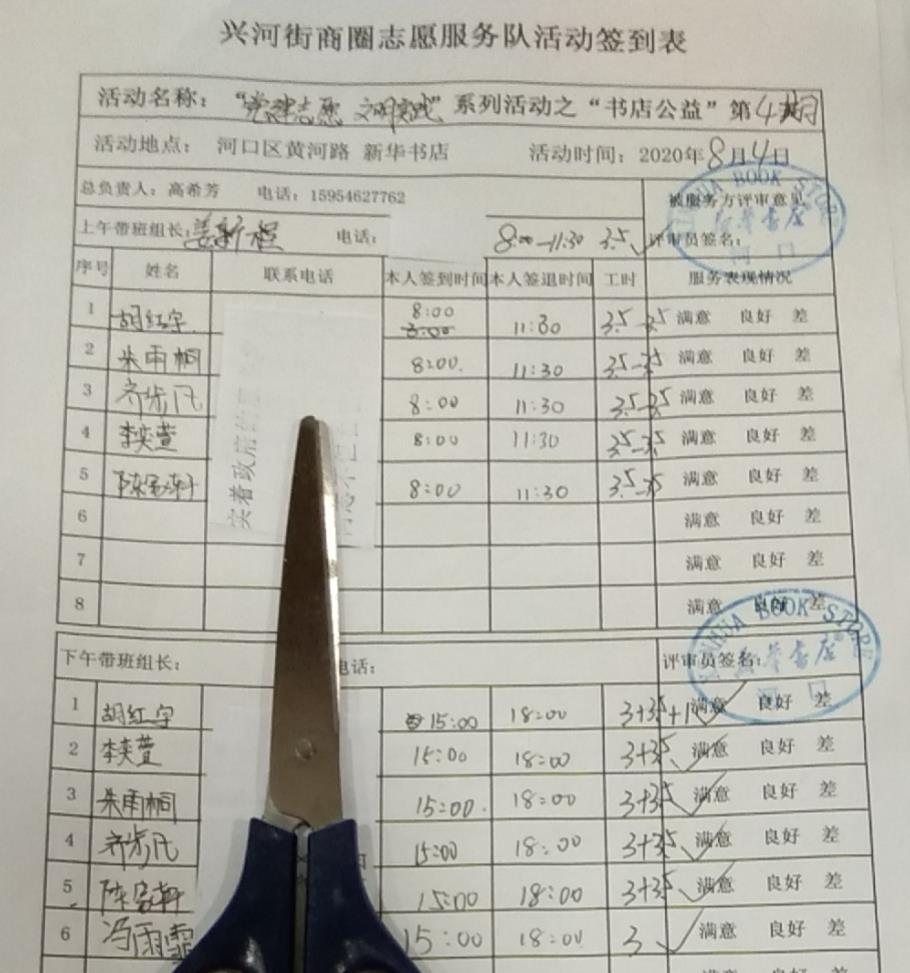 兴河街商圈志愿服务队活动签到表
活动名称：“党建志愿 文明实践”系列活动之“书店公益”第4期
活动地点： 河口区黄河路 新华书店 活动时间：2020年8月4日
总负责人：高希芳 电话：15954627762 被服务方评审意见
上午带班组长：姜新程 电话： 8:00-11:30 3.5 评审员签名：
序号 姓名 联系电话 本人签到时间 本人签退时间 工时 服务表现情况
1 胡红宇 8:00 11:30 3.5 3.5 满意 良好 差
2 朱雨桐 8:00 11:30 3.5-3.5 满意 良好 差
3 齐步凡 8:00 11:30 3.5-3.5 满意 良好 差
4 李奕萱 8:00 11:30 3.5-3.5 满意 良好 差
5 陈家轩 8:00 11:30 3.5-3.5 满意 良好 差
6 满意 良好 差
7 满意 良好 差
8 满意 良好 差
下午带班组长： 电话： 评审员签名：
1 胡红宇 15:00 18:00 3+3.5+1 满意 良好 差
2 李奕萱 15:00 18:00 3+3.5 满意 良好 差
3 朱雨桐 15:00 18:00 3+3.5 满意 良好 差
4 齐步凡 15:00 18:00 3+3.5 满意 良好 差
5 陈家轩 15:00 18:00 3+3.5 满意 良好 差
6 冯雨霏 15:00 18:00 3 满意 良好 差
XINHUA BOOK STORE
新华书店
河口
XINHUA BOOK STORE
新华书店
河口